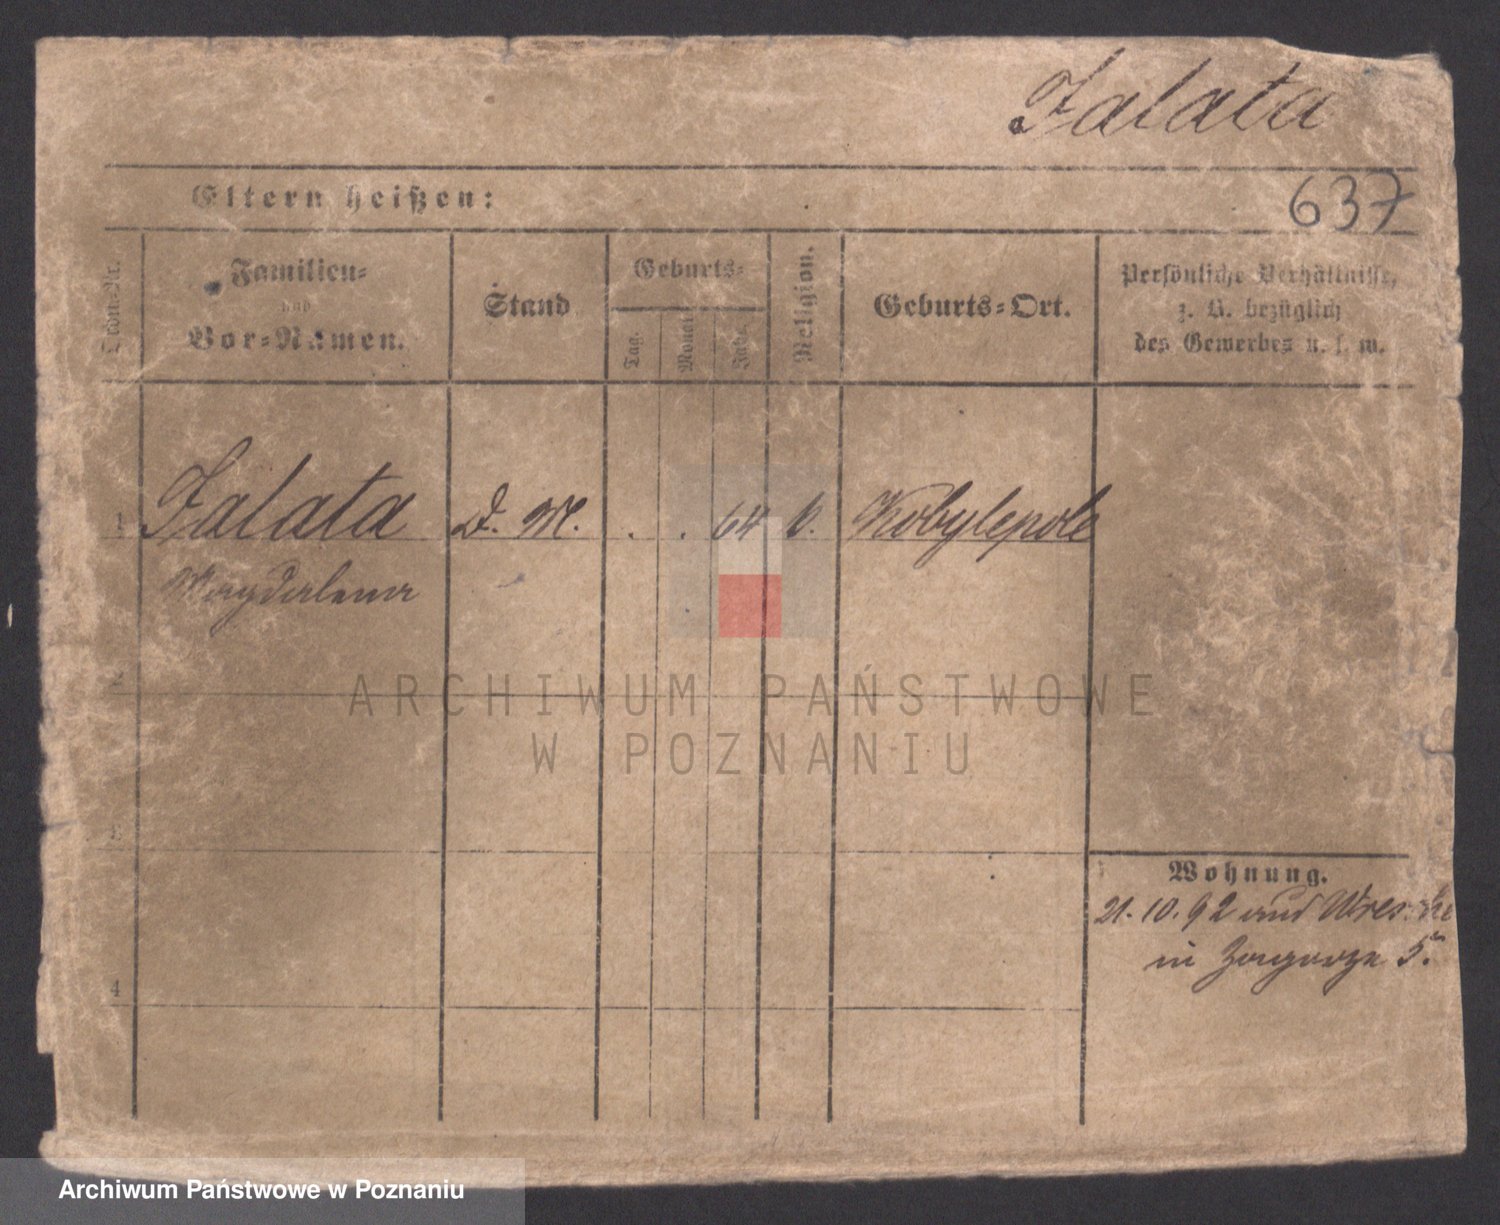 Falata
637
Eltern heißen:
Familien-
und
Vor-Namen.
Stand
Geburts-
Tag.
Monat
Jahr.
Religion.
Geburts-Ort.
Persönliche Verhältnisse,
z. B. bezüglich
des Gewerbes u. s. w.
1 Falata D. M. . . 64 k. Kobylepole
Magdalena
2
3
4
Wohnung.
21.10.92 aus
in Zagorze 5.
ARCHIWUM PAŃSTWOWE
W POZNANIU
Archiwum Państwowe w Poznaniu